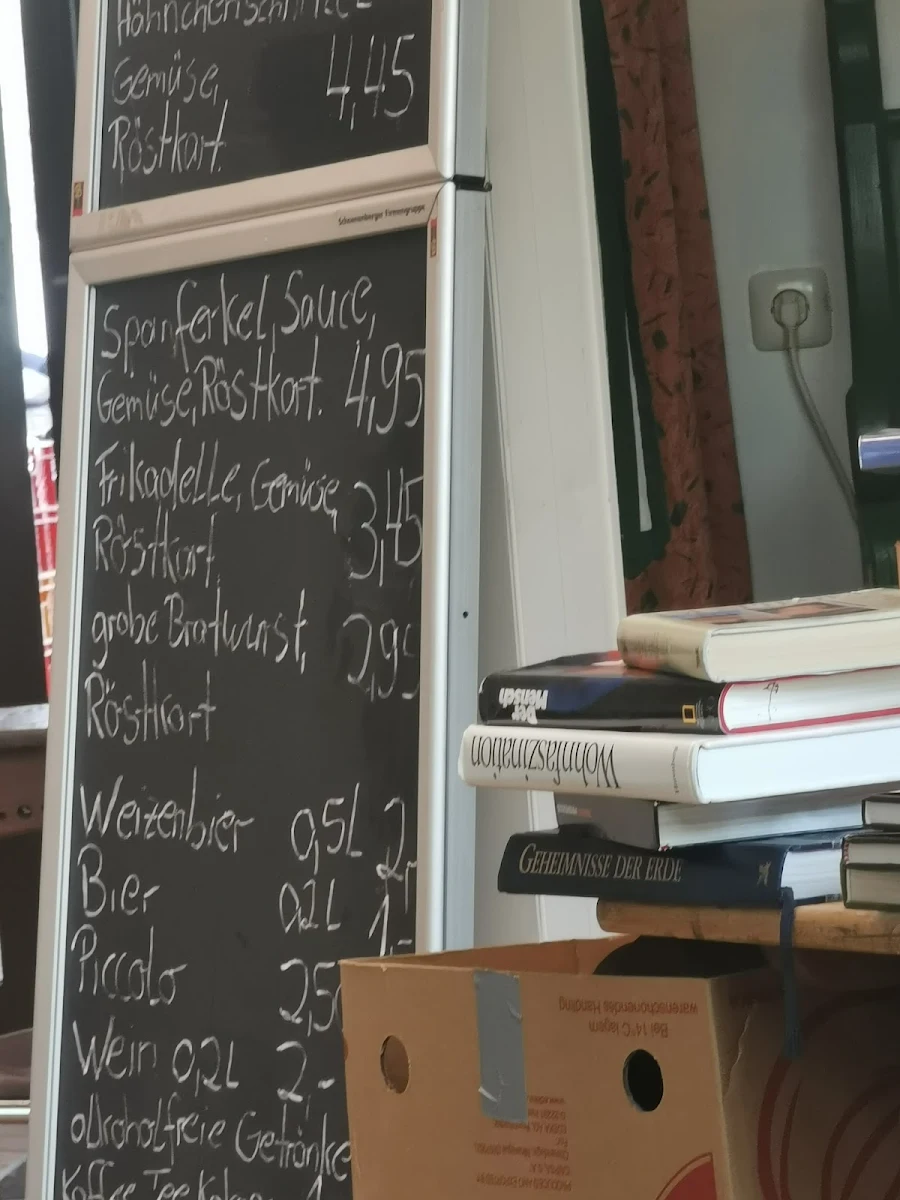 Hähnchenschnitzel
Gemüse, 4,45
Röstkart.
Schnurrenberger Firmengruppe
Spanferkel, Sauce,
Gemüse, Röstkart. 4,95
Frikadelle, Gemüse, 3,45
Röstkart.
grobe Bratwurst, 2,95
Röstkart
Weizenbier 0,5L 2,-
Bier 0,2L 1,-
Piccolo 2,50
Wein 0,2L 2,-
alkoholfreie Getränke
Kaffee Tee Kakao
Der
Mensch
Wohnfaszination
GEHEIMNISSE DER ERDE
Bei 14°C lagern
warenschonendes Handling